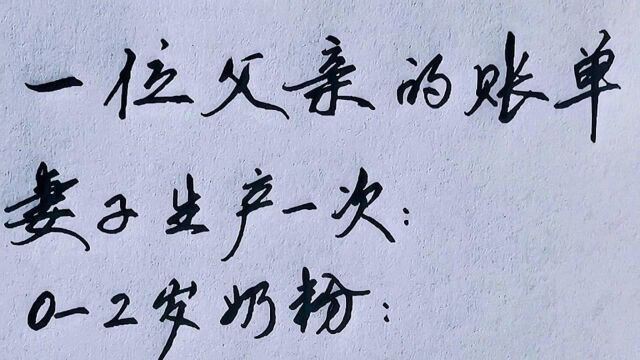 一位父亲的账单
妻子生产一次:
0-2岁奶粉: